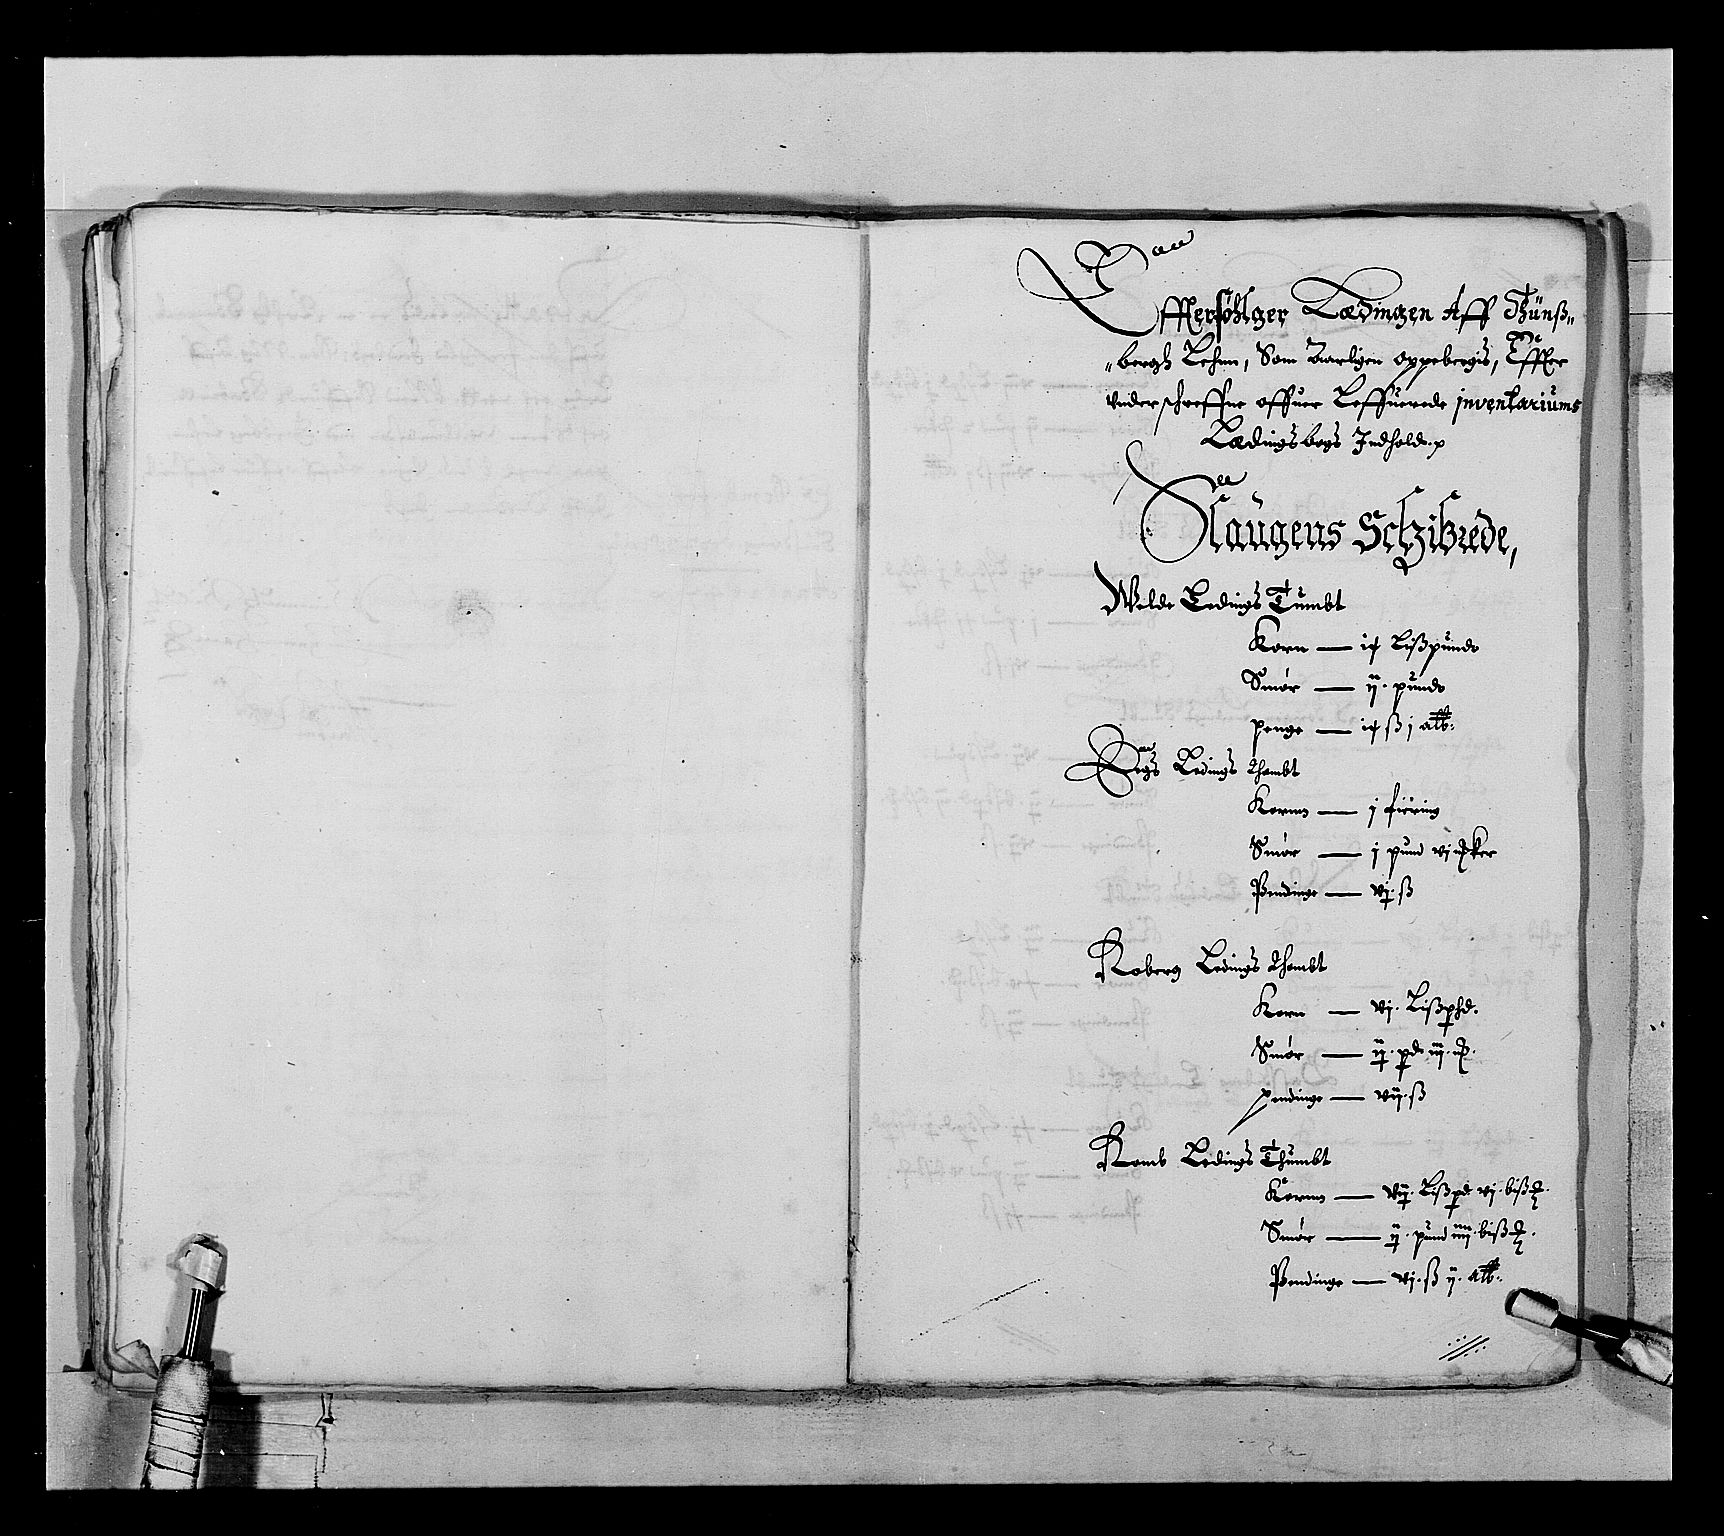 Effterfølger Lædingen Aff Thünß„
„bergh Lehnn, Som Aarligen oppebergis, Effter
vnderschreffne offuer Leffuerede jnventariums
Lædings bogs Jndhold.p
Slaugens Schibrede,
Welde Ledings Tumbt
Korn — iɋ Lißpunde
Smør — ij. punde
penge — iɋ ß j alb:
Bergs Ledings Thombt
Kornn — j fiering
Smør — j pund vj mker
Pendinge — vj. ß
Roberg Ledings Thombt
Korn — vj. Lißphd.
Smør — ij. pd. iij. m.
pendinge — vij. ß
Romb Ledings Thumbt
Kornn — vij. Lißpd. vj. biß m.
Smør — ij. pund iiij. biß m.
Pendinge — vj. ß ij. alb: